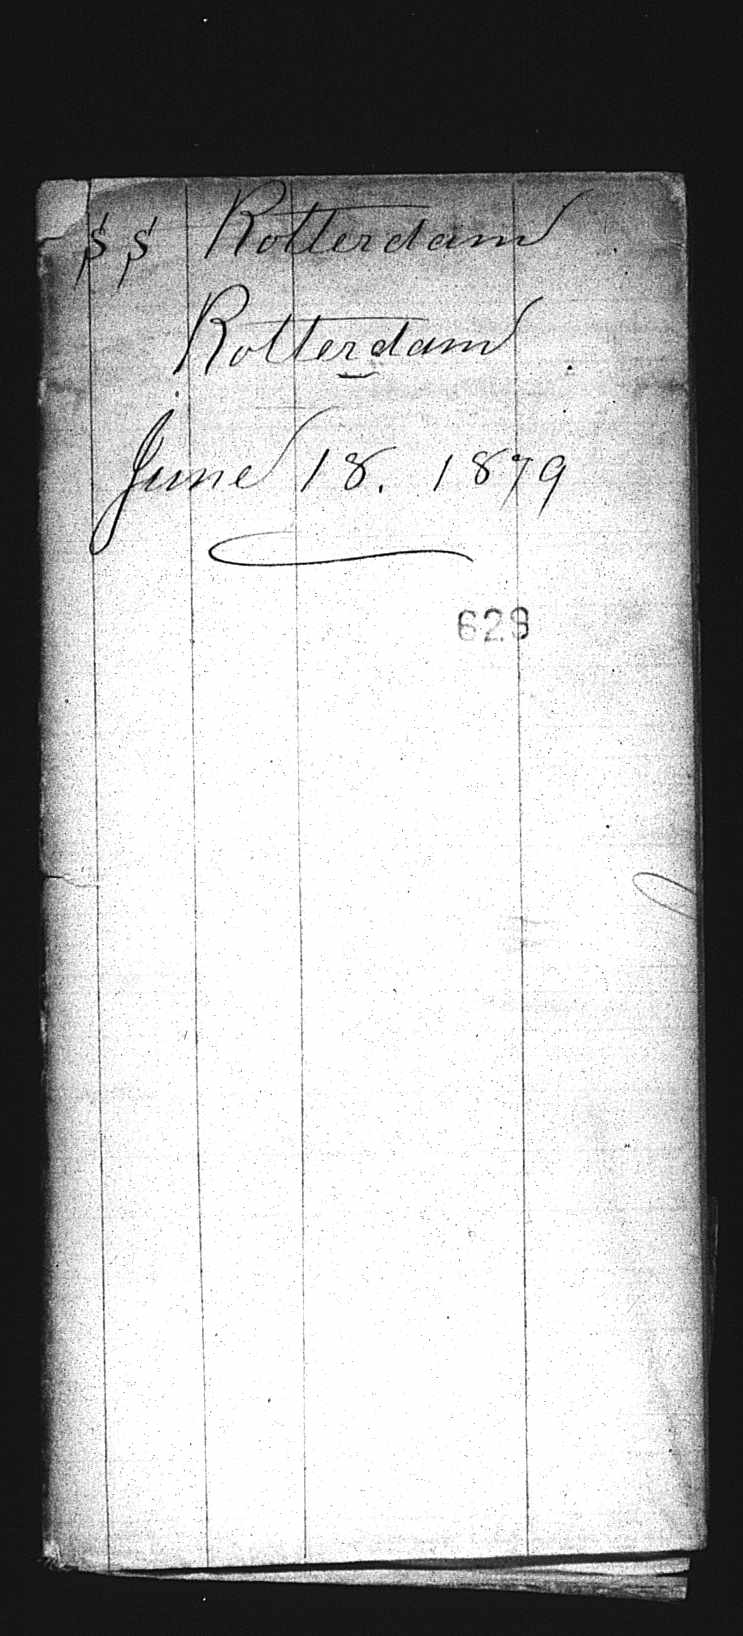 SS Rotterdam
Rotterdam
June 18. 1879
629